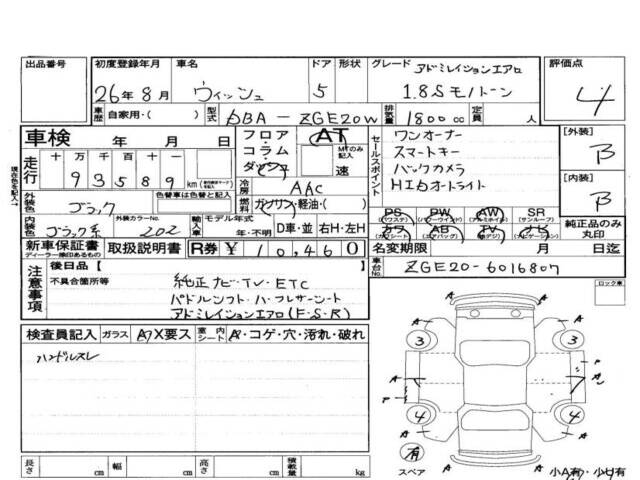 出品番号 初度登録年月 車名 ドア 形状 グレード 評価点
アドミレイションエアロ
26年8月 ウィッシュ 5 1.8S モノトーン 4
車歴 自家用・( ) 型式 DBA-ZGE20W 排気量 1800cc 定員 人
車検 年 月 日 フロア・コラム・ダッシュ AT MTのみ記入 速
セールスポイント
ワンオーナー
スマートキー
バックカメラ
HIDオートライト
[外装] B
[内装] B
現在色を記入→
走行 十万 万 千 百 十 一
93589 km
冷房 AAC
外装色 ブラック 色替車は色替前の色 燃料 ガソリン・軽油・( )
内装色 ブラック系 外装カラーNo. 202 輸入車 モデル年式 年・不明 D車・並 右H・左H
PS PW AW SR
パワステ パワーウインド アルミホイル サンルーフ
カワ エアB TV ナビ
カワシート エアバッグ 地デジ ナビゲーション
純正品のみ丸印
新車保証書 ディーラー捺印あるもの 取扱説明書 R券 ¥10,460 名変期限 月 日迄
車台No. ZGE20-6016807
注意事項 後日品【 】
不具合箇所等 純正ナビ・TV・ETC
パドルシフト・ハーフレザーシート
アドミレイションエアロ(F・S・R)
ロック車
検査員記入 ガラス A・X要ス 室内シート A・コゲ・穴・汚れ・破れ
ハンドルスレ
3 3
A P
A A
P
4 4
A A
A A
有
スペア A A
小A有・小U有
長さ cm 幅 cm 高さ cm 積載量 kg